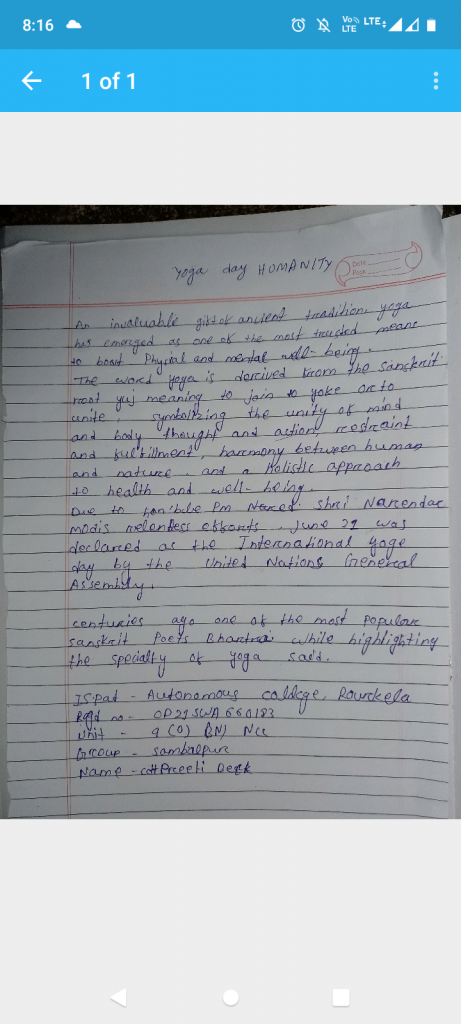 8:16
Vo LTE LTE
1 of 1
Yoga day HUMANITY
Date
Page
An invaluable gift of ancient tradition, yoga
has emerged as one of the most trusted means
to boost Physial and mental well-being.
The word yoga is dercived from the sanskrit
root yuj meaning to join to yoke or to
unite, symbolizing the unity of mind
and body thought and action, restraint
and fulfillment, harmony between human
and nature and a Holistic approach
to health and well-being.
Due to hon'ble Pm Shri Narendar
modis relentless efforts June 21 was
declared as the International yoge
day by the United Nations General
Assembly.
centuries ago one of the most Popular
sanskrit Poets while highlighting
the specialty of yoga said.
Ispat - Autonomous collage, Rourkela
Regd no - OD21SWA660183
Unit - 9 (O) BN) Ncc
Group - Sambalpur
Name - Preeti